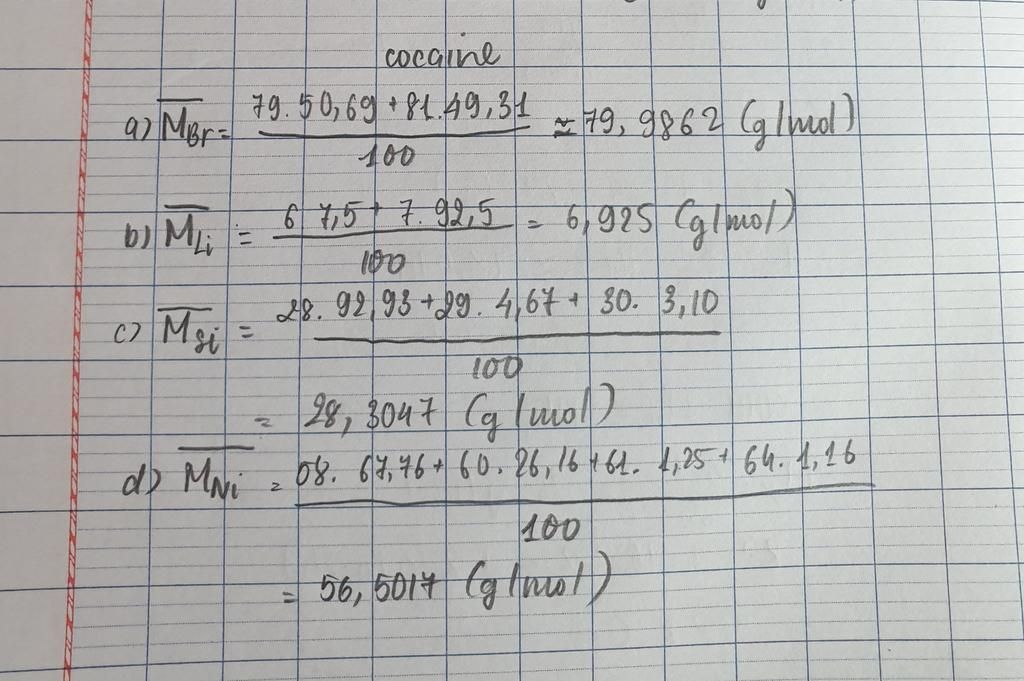 cocaine
a) M̅Br = 79.50,69 + 81.49,31 / 100 ≈ 79,9862 (g/mol)
b) M̅Li = 6 7,5 + 7.92,5 / 100 = 6,925 (g/mol)
c) M̅Si = 28.92,93 + 29.4,67 + 30.3,10 / 100
= 28,3047 (g/mol)
d) M̅Ni = 08.67,76 + 60.26,16 + 61.1,25 + 64.1,16 / 100
= 56,5017 (g/mol)